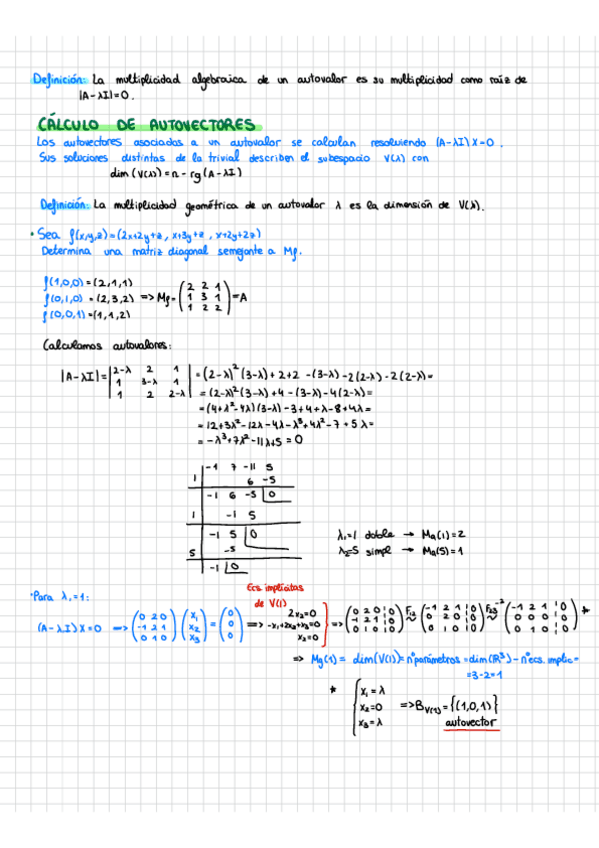 Definición: La multiplicidad algebraica de un autovalor es su multiplicidad como raíz de
|A-λI|=0.
CÁLCULO DE AUTOVECTORES
Los autovectores asociados a un autovalor se calculan resolviendo (A-λI)X=0.
Sus soluciones distintas de la trivial describen el subespacio V(λ) con
dim(V(λ))=n-rg(A-λI)
Definición: La multiplicidad geométrica de un autovalor λ es la dimensión de V(λ).
• Sea f(x,y,z)=(2x+2y+z, x+3y+z, x+2y+2z)
Determina una matriz diagonal semejante a Mf.
f(1,0,0)=(2,1,1)
f(0,1,0)=(2,3,2) => Mf= (2 2 1 / 1 3 1 / 1 2 2) =A
f(0,0,1)=(1,1,2)
Calculamos autovalores:
|A-λI|= |2-λ 2 1 / 1 3-λ 1 / 1 2 2-λ| =(2-λ)²(3-λ)+2+2-(3-λ)-2(2-λ)-2(2-λ)=
=(2-λ)²(3-λ)+4-(3-λ)-4(2-λ)=
=(4+λ²-4λ)(3-λ)-3+4+λ-8+4λ=
=12+3λ²-12λ-4λ-λ³+4λ²-7+5λ=
=-λ³+7λ²-11λ+5=0
-1 7 -11 5
1 6 -5
-1 6 -5 0
1 -1 5
-1 5 0
5 -5
-1 0
λ₁=1 doble → Ma(1)=2
λ₂=5 simpl → Ma(5)=1
•Para λ₁=1:
Ecs. implícitas
de V(1)
(A-λI)X=0 => (0 2 0 / -1 2 1 / 0 1 0) (x₁ / x₂ / x₃) = (0 / 0 / 0) => 2x₂=0 / -x₁+2x₂+x₃=0 / x₂=0 => (0 2 0 | 0 / -1 2 1 | 0 / 0 1 0 | 0) F₁₂ ~ (-1 2 1 | 0 / 0 2 0 | 0 / 0 1 0 | 0) F₂₃⁻² ~ (-1 2 1 | 0 / 0 0 0 | 0 / 0 1 0 | 0) *
=> Mg(1)= dim(V(1))=nºparámetros=dim(R³)-nºecs.implic=
=3-2=1
* {x₁=λ
x₂=0 => B_V(1)={(1,0,1)}
x₃=λ autovector